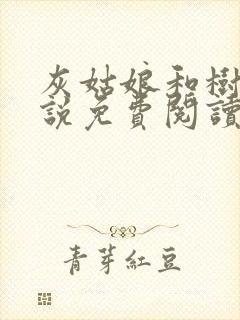 灰姑娘和樹
說免費閱讀
青芽紅豆